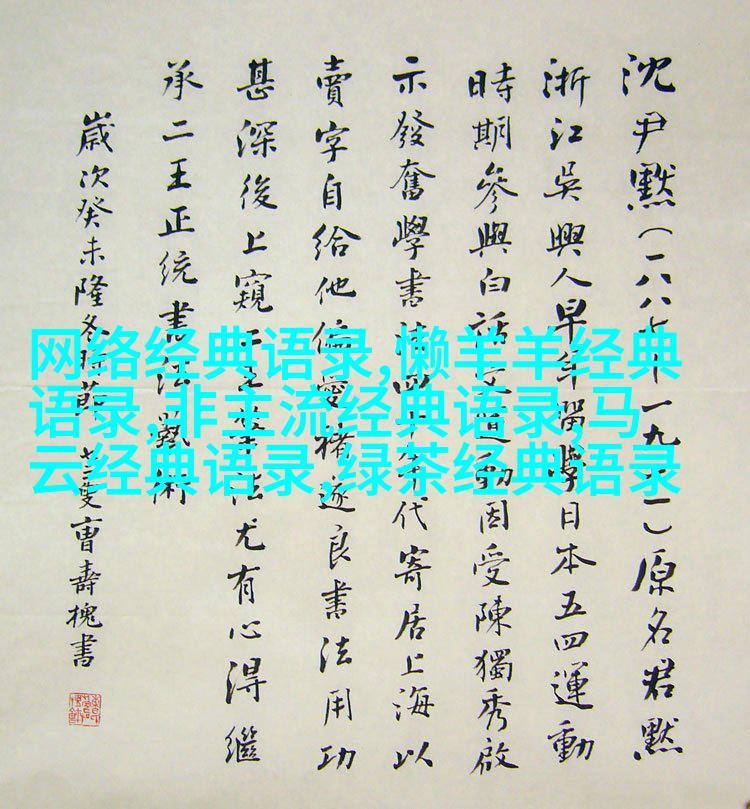 沈尹默（一八八七—一九七一）原名君默
浙江吳興人早年留學日本五四運動
時期參與白話文運動因受陳獨秀啟
示發奮學書四十年代寄居上海以
賣字自給他偏愛褚遂良書法用功
甚深後上窺二王筆法尤有心得繼
承二王正統書法藝術
歲次癸未隆冬時節曹壽槐書
网络经典语录,懒羊羊经典
语录,非主流经典语录,马
云经典语录,绿茶经典语录